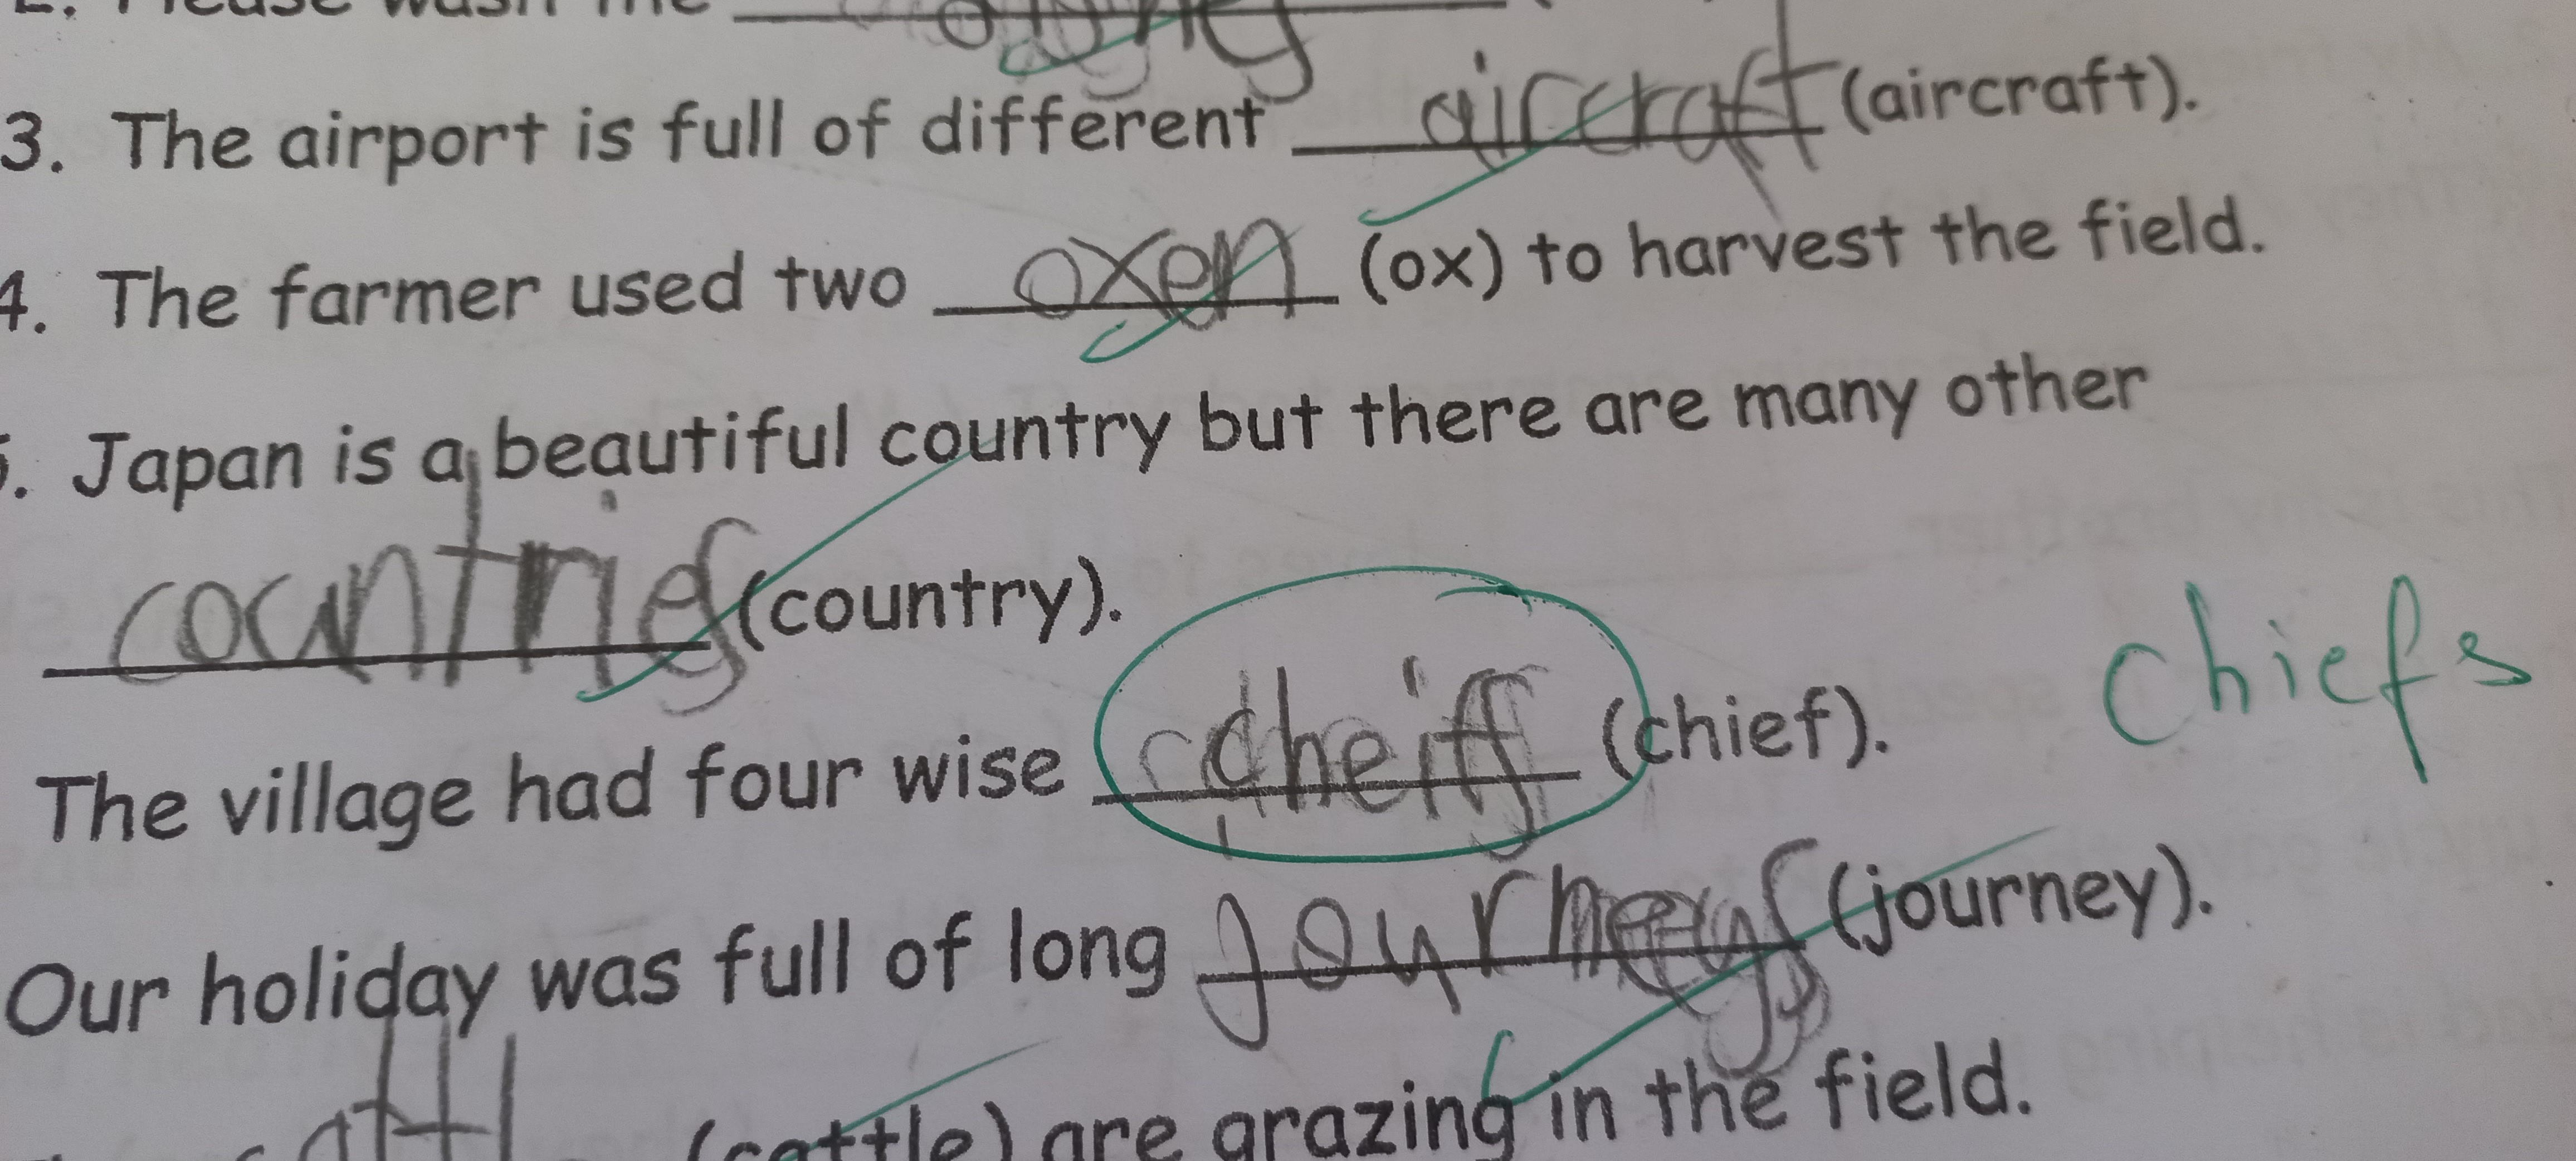 2. Please wash the
3. The airport is full of different aircraft (aircraft).
4. The farmer used two oxen (ox) to harvest the field.
5. Japan is a beautiful country but there are many other
countries (country).
The village had four wise cheiff (chief). chiefs
Our holiday was full of long journeys (journey).
(cattle) are grazing in the field.